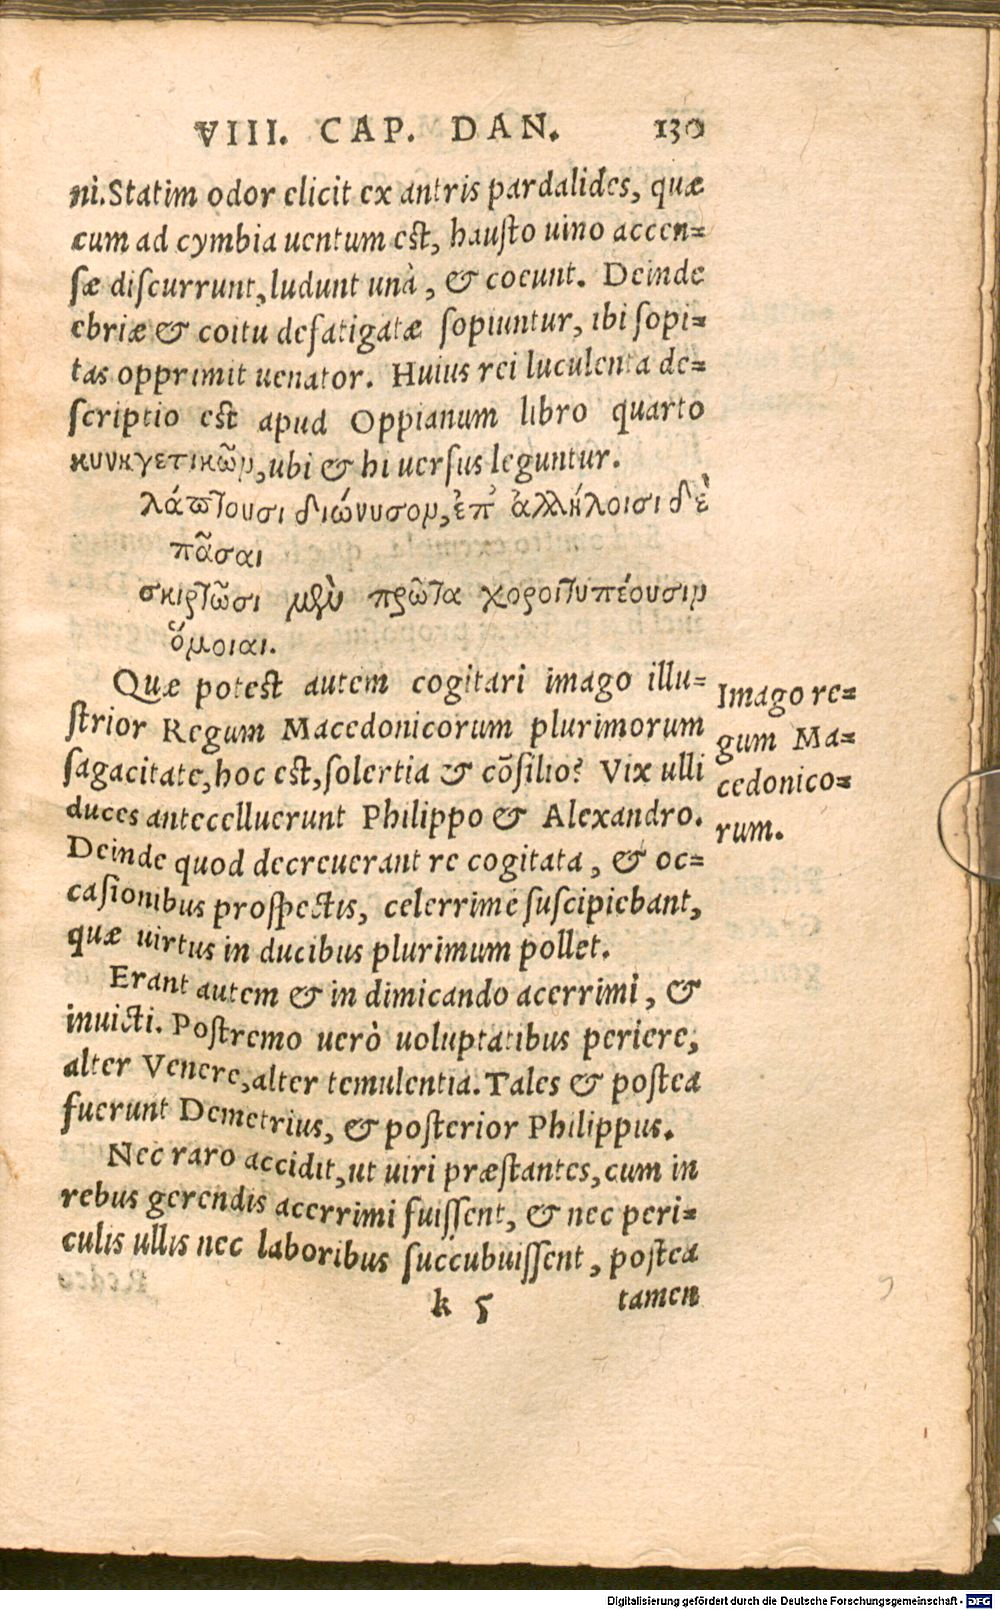 VIII. CAP. DAN. 130
ni. Statim odor elicit ex antris pardalides, quæ
cum ad cymbia uentum est, hausto uino accen=
sæ discurrunt, ludunt unà, & coeunt. Deinde
ebriæ & coitu defatigatæ sopiuntur, ibi sopi=
tas opprimit uenator. Huius rei luculenta de=
scriptio est apud Oppianum libro quarto
κυνηγετικῶν, ubi & hi uersus leguntur.
λάπτουσι διώνυσον, ἐπ' ἀλλήλοισι δὲ
πᾶσαι
σκιρτῶσι μὲν πρῶτα χοροιτυπέουσιν
ὅμοιαι.
Quæ potest autem cogitari imago illu=
strior Regum Macedonicorum plurimorum
sagacitate, hoc est, solertia & cõsilio? Vix ulli
duces antecelluerunt Philippo & Alexandro.
Deinde quod decreuerant re cogitata, & oc=
casionibus prospectis, celerrimè suscipiebant,
quæ uirtus in ducibus plurimum pollet.
Imago re=
gum Ma=
cedonico=
rum.
Erant autem & in dimicando acerrimi, &
inuicti. Postremo uerò uoluptatibus periere,
alter Venere, alter temulentia. Tales & postea
fuerunt Demetrius, & posterior Philippus.
Nec raro accidit, ut uiri præstantes, cum in
rebus gerendis acerrimi fuissent, & nec peri=
culis ullis nec laboribus succubuissent, postea
k 5 tamen
Digitalisierung gefördert durch die Deutsche Forschungsgemeinschaft - DFG